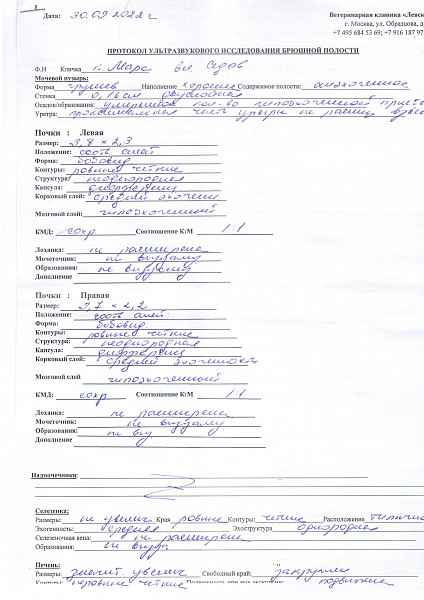 Дата: 30.09 2022 г
Ветеринарная клиника «Левск
г. Москва, ул. Образцова, д
+7 495 684 53 69; +7 916 187 97
ПРОТОКОЛ УЛЬТРАЗВУКОВОГО ИССЛЕДОВАНИЯ БРЮШНОЙ ПОЛОСТИ
Ф.И Кличка к. Марс вл Седов
Мочевой пузырь:
Форма грушев Наполнение хорошее Содержимое полости: анэхогенное
Стенка 0,16см двуслойная
Осадок/образования: умеренное кол-во гипоэхогенной
Уретра: проксимальная часть уретры не расшир
Почки : Левая
Размер: 3,8 × 2,3
Положение: соотв анат
Форма: бобовид
Контуры: ровные четкие
Структура: неоднородная
Капсула: дифференц
Корковый слой: средней эхоген
Мозговой слой: гипоэхогенный
КМД: сохр Соотношение К:М 1:1
Лоханка: не расширена
Мочеточник: не визуализ
Образования: не визуализ
Дополнение
Почки : Правая
Размер: 3,7 × 2,2
Положение: соотв анат.
Форма: бобовид.
Контуры: ровные четкие
Структура: неоднородная
Капсула: дифференц
Корковый слой: средней эхогенност
Мозговой слой гипоэхогенный
КМД: сохр Соотношение К:М 1:1
Лоханка: не расширена
Мочеточник: не визуализ
Образования: не виз
Дополнение
Надпочечники:
Селезенка:
Размеры: не увелич Края ровные Контуры: четкие Расположение типичн
Эхогенность: средняя Эхоструктура однородная
Селезеночная вена: не расширена
Образования: не визуал
Печень:
Размеры: значит увелич Свободный край: закруглен
Контуры: неровные четкие подвижные